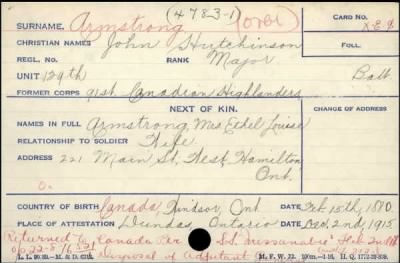 (4783-1)
SURNAME. Armstrong (OFF'R) CARD NO.
CHRISTIAN NAMES John Hutchinson
REGL. NO. RANK Major FOLL.
UNIT 129th Batt
FORMER CORPS 91st Canadian Highlanders
NEXT OF KIN. CHANGE OF ADDRESS
NAMES IN FULL Armstrong, Mrs Ethel Louise
RELATIONSHIP TO SOLDIER Wife
ADDRESS 221 Main St. West, Hamilton
Ont.
O.
COUNTRY OF BIRTH Canada, Windsor, Ont DATE Feb 15th, 1880.
PLACE OF ATTESTATION Dundas, Ontario DATE Dec. 2nd, 1915
Returned to Canada Per S.S. "Missanabie" Feb 2nd
Disposal of Adjutant
M. F. W. 22.